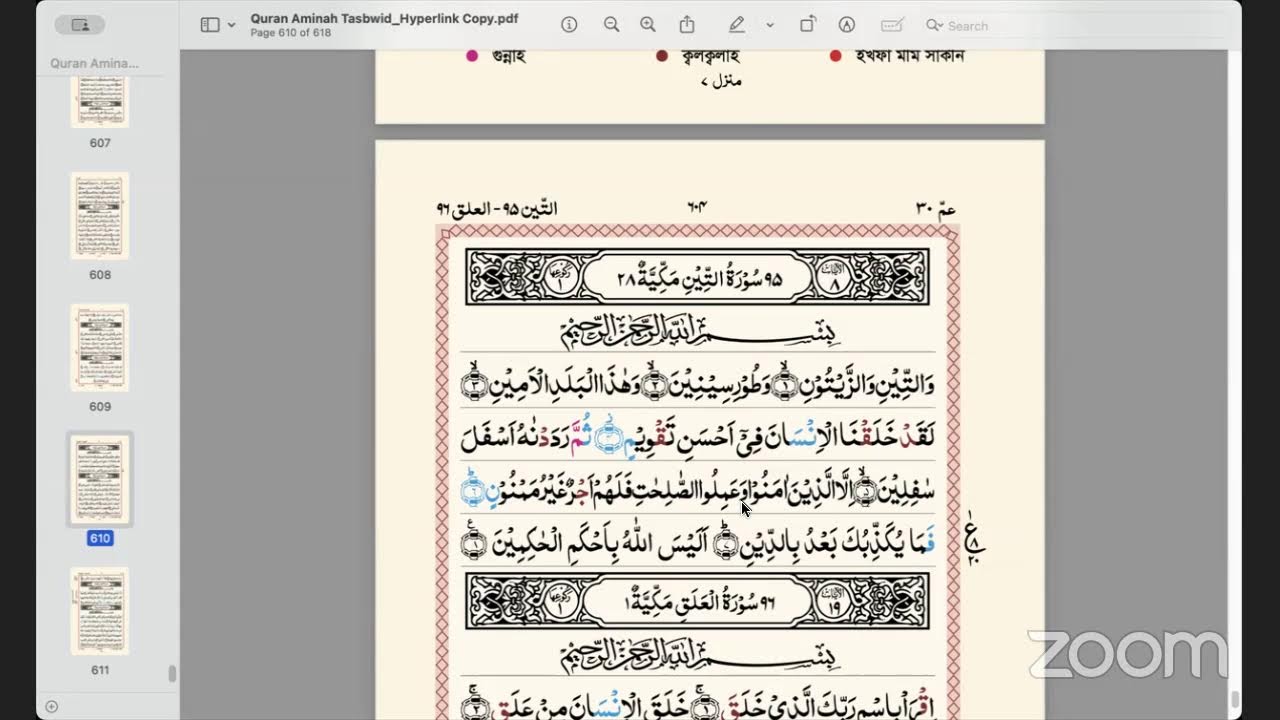 Quran Aminah Tasbwid_Hyperlink Copy.pdf
Page 610 of 618
Search
Quran Amina...
607
608
609
610
611
গুন্নাহ ক্বলক্বলাহ ইখফা মীম সাকিন
منزل ٧
عمّ ٣٠ ٦٠٤ التّين ٩٥ - العلق ٩٦
٩٥ سُوْرَةُ التِّيْنِ مَكِّيَّةٌ ٢٨
بِسْمِ اللّٰهِ الرَّحْمٰنِ الرَّحِيْمِ
وَالتِّيْنِ وَالزَّيْتُوْنِ ١ وَطُوْرِ سِيْنِيْنَ ٢ وَهٰذَا الْبَلَدِ الْاَمِيْنِ ٣
لَقَدْ خَلَقْنَا الْاِنْسَانَ فِيْٓ اَحْسَنِ تَقْوِيْمٍ ٤ ثُمَّ رَدَدْنٰهُ اَسْفَلَ
سٰفِلِيْنَ ٥ اِلَّا الَّذِيْنَ اٰمَنُوْا وَعَمِلُوا الصّٰلِحٰتِ فَلَهُمْ اَجْرٌ غَيْرُ مَمْنُوْنٍ ٦
فَمَا يُكَذِّبُكَ بَعْدُ بِالدِّيْنِ ٧ اَلَيْسَ اللّٰهُ بِاَحْكَمِ الْحٰكِمِيْنَ ٨
٩٦ سُوْرَةُ الْعَلَقِ مَكِّيَّةٌ ١
بِسْمِ اللّٰهِ الرَّحْمٰنِ الرَّحِيْمِ
اِقْرَاْ بِاسْمِ رَبِّكَ الَّذِيْ خَلَقَ ١ خَلَقَ الْاِنْسَانَ مِنْ عَلَقٍ ٢
zoom